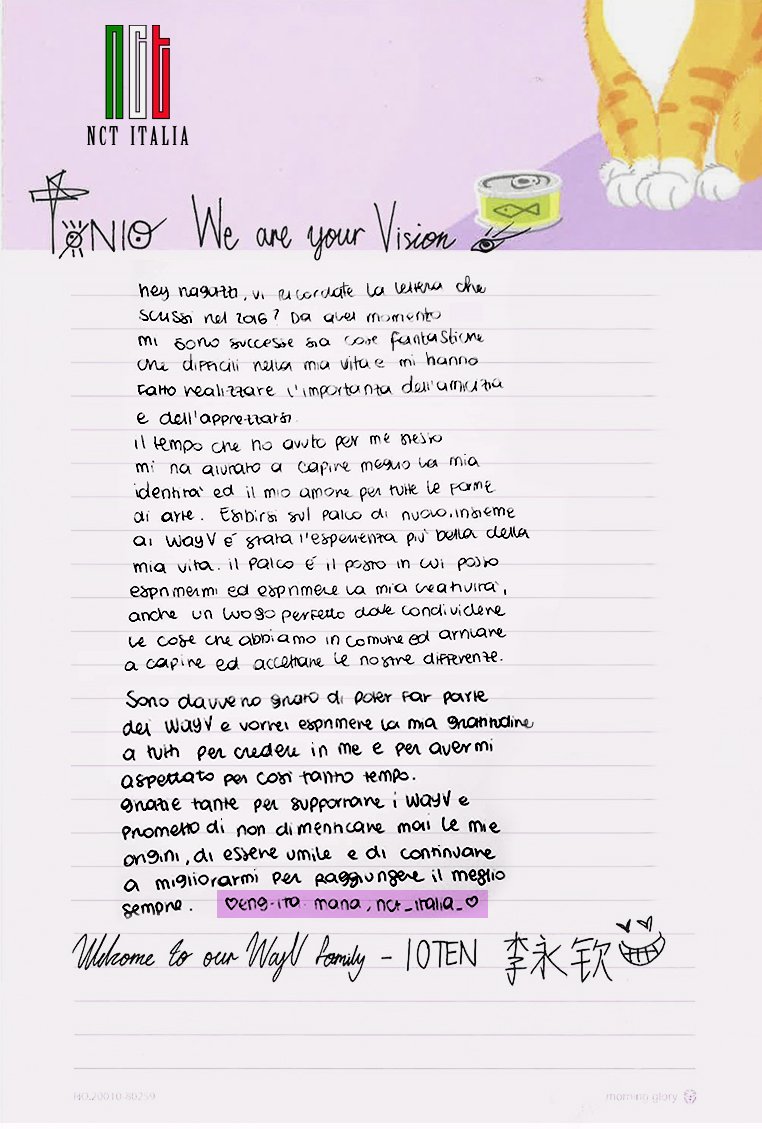 nct
NCT ITALIA
TONIO We are your Vision
hey ragazzi, vi ricordate la lettera che
scrissi nel 2016? Da quel momento
mi sono successe sia cose fantastiche
che difficili nella mia vita e mi hanno
fatto realizzare l'importanza dell'amicizia
e dell'apprezzarsi.
il tempo che ho avuto per me stesso
mi ha aiutato a capire meglio la mia
identità ed il mio amore per tutte le forme
di arte. Esibirsi sul palco di nuovo, insieme
ai WayV é stata l'esperienza più bella della
mia vita. il palco é il posto in cui posso
esprimermi ed esprimere la mia creatività,
anche un luogo perfetto dove condividere
le cose che abbiamo in comune ed arrivare
a capire ed accettare le nostre differenze.
Sono davvero grato di poter far parte
dei WayV e vorrei esprimere la mia gratitudine
a tutti per credere in me e per avermi
aspettato per così tanto tempo.
grazie tante per supportare i WayV e
prometto di non dimenticare mai le mie
origini, di essere umile e di continuare
a migliorarmi per raggiungere il meglio
sempre. ♡eng-ita mana, nct_italia_♡
Welcome to our WayV family - 10TEN 李永钦
NO.20010-80259 morning glory